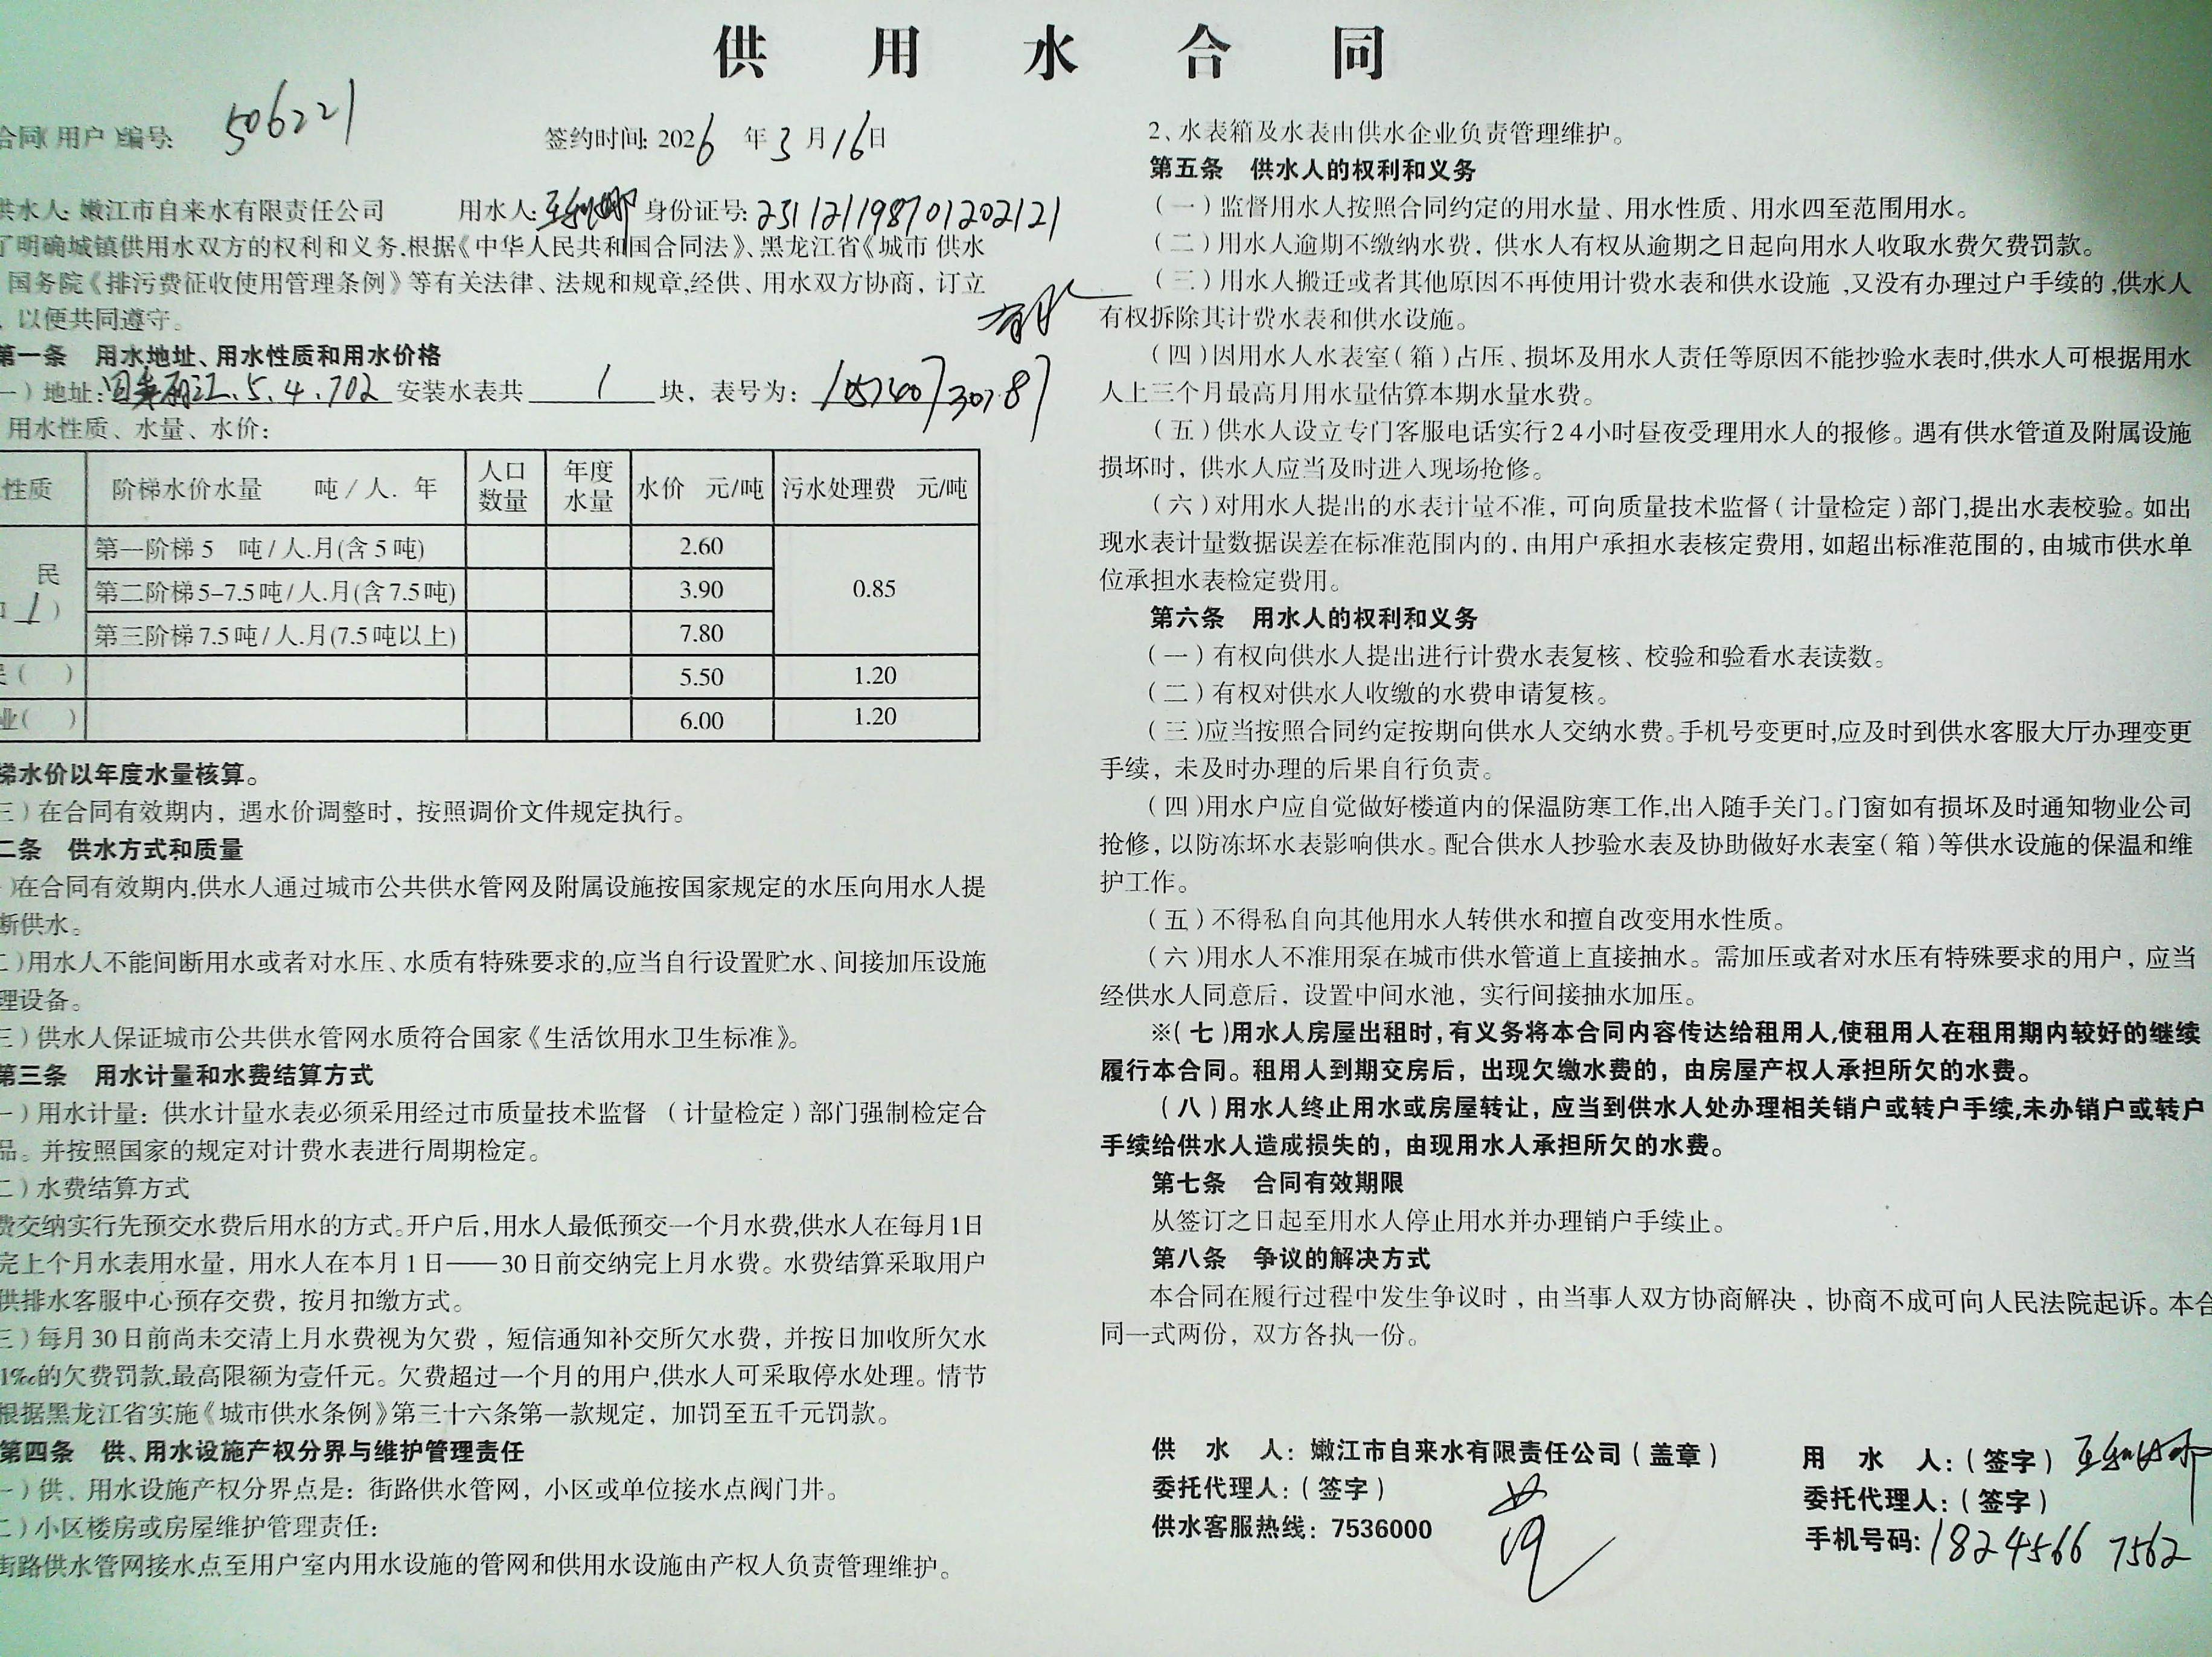 供用水合同
合同(用户)编号: 506221
签约时间: 2026年3月16日
供水人: 嫩江市自来水有限责任公司 用水人: 身份证号: 231121198701202121
了明确城镇供用水双方的权利和义务,根据《中华人民共和国合同法》、黑龙江省《城市供水
国务院《排污费征收使用管理条例》等有关法律、法规和规章,经供、用水双方协商，订立
，以便共同遵守。
第一条 用水地址、用水性质和用水价格
一）地址: 丽江.5.4.702 安装水表共 1 块，表号为:
用水性质、水量、水价:
性质 阶梯水价水量 吨/人.年 人口数量 年度水量 水价 元/吨 污水处理费 元/吨
民 1 ） 第一阶梯5 吨/人.月(含5吨) 2.60 0.85
第二阶梯5-7.5吨/人.月(含7.5吨) 3.90
第三阶梯7.5吨/人.月(7.5吨以上) 7.80
( ) 5.50 1.20
业( ) 6.00 1.20
梯水价以年度水量核算。
三）在合同有效期内，遇水价调整时，按照调价文件规定执行。
二条 供水方式和质量
)在合同有效期内,供水人通过城市公共供水管网及附属设施按国家规定的水压向用水人提
断供水。
二)用水人不能间断用水或者对水压、水质有特殊要求的,应当自行设置贮水、间接加压设施
理设备。
三）供水人保证城市公共供水管网水质符合国家《生活饮用水卫生标准》。
第三条 用水计量和水费结算方式
一）用水计量：供水计量水表必须采用经过市质量技术监督（计量检定）部门强制检定合
品。并按照国家的规定对计费水表进行周期检定。
二）水费结算方式
费交纳实行先预交水费后用水的方式。开户后,用水人最低预交一个月水费,供水人在每月1日
完上个月水表用水量，用水人在本月1日——30日前交纳完上月水费。水费结算采取用户
供排水客服中心预存交费，按月扣缴方式。
三）每月30日前尚未交清上月水费视为欠费，短信通知补交所欠水费，并按日加收所欠水
1‰的欠费罚款,最高限额为壹仟元。欠费超过一个月的用户,供水人可采取停水处理。情节
根据黑龙江省实施《城市供水条例》第三十六条第一款规定，加罚至五千元罚款。
第四条 供、用水设施产权分界与维护管理责任
一）供、用水设施产权分界点是：街路供水管网，小区或单位接水点阀门井。
二）小区楼房或房屋维护管理责任:
街路供水管网接水点至用户室内用水设施的管网和供用水设施由产权人负责管理维护。
2、水表箱及水表由供水企业负责管理维护。
第五条 供水人的权利和义务
（一）监督用水人按照合同约定的用水量、用水性质、用水四至范围用水。
（二）用水人逾期不缴纳水费，供水人有权从逾期之日起向用水人收取水费欠费罚款。
（三）用水人搬迁或者其他原因不再使用计费水表和供水设施,又没有办理过户手续的,供水人
有权拆除其计费水表和供水设施。
（四）因用水人水表室（箱）占压、损坏及用水人责任等原因不能抄验水表时,供水人可根据用水
人上三个月最高月用水量估算本期水量水费。
（五）供水人设立专门客服电话实行24小时昼夜受理用水人的报修。遇有供水管道及附属设施
损坏时，供水人应当及时进入现场抢修。
（六）对用水人提出的水表计量不准，可向质量技术监督（计量检定）部门,提出水表校验。如出
现水表计量数据误差在标准范围内的，由用户承担水表核定费用，如超出标准范围的，由城市供水单
位承担水表检定费用。
第六条 用水人的权利和义务
（一）有权向供水人提出进行计费水表复核、校验和验看水表读数。
（二）有权对供水人收缴的水费申请复核。
（三)应当按照合同约定按期向供水人交纳水费。手机号变更时,应及时到供水客服大厅办理变更
手续，未及时办理的后果自行负责。
（四)用水户应自觉做好楼道内的保温防寒工作,出入随手关门。门窗如有损坏及时通知物业公司
抢修，以防冻坏水表影响供水。配合供水人抄验水表及协助做好水表室（箱）等供水设施的保温和维
护工作。
（五）不得私自向其他用水人转供水和擅自改变用水性质。
（六)用水人不准用泵在城市供水管道上直接抽水。需加压或者对水压有特殊要求的用户，应当
经供水人同意后，设置中间水池，实行间接抽水加压。
※（七)用水人房屋出租时，有义务将本合同内容传达给租用人,使租用人在租用期内较好的继续
履行本合同。租用人到期交房后，出现欠缴水费的，由房屋产权人承担所欠的水费。
（八）用水人终止用水或房屋转让，应当到供水人处办理相关销户或转户手续,未办销户或转户
手续给供水人造成损失的，由现用水人承担所欠的水费。
第七条 合同有效期限
从签订之日起至用水人停止用水并办理销户手续止。
第八条 争议的解决方式
本合同在履行过程中发生争议时，由当事人双方协商解决，协商不成可向人民法院起诉。本合
同一式两份，双方各执一份。
供水人：嫩江市自来水有限责任公司（盖章）
委托代理人：（签字）
供水客服热线：7536000
用水人：（签字）
委托代理人：（签字）
手机号码: 18245667562